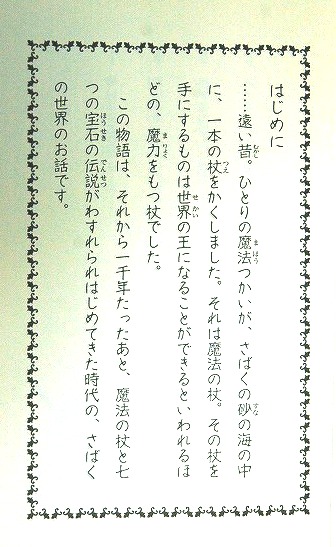 はじめに
……遠い昔。ひとりの魔法つかいが、さばくの砂の海の中
に、一本の杖をかくしました。それは魔法の杖。その杖を
手にするものは世界の王になることができるといわれるほ
どの、魔力をもつ杖でした。
この物語は、それから一千年たったあと、魔法の杖と七
つの宝石の伝説がわすれられはじめてきた時代の、さばく
の世界のお話です。